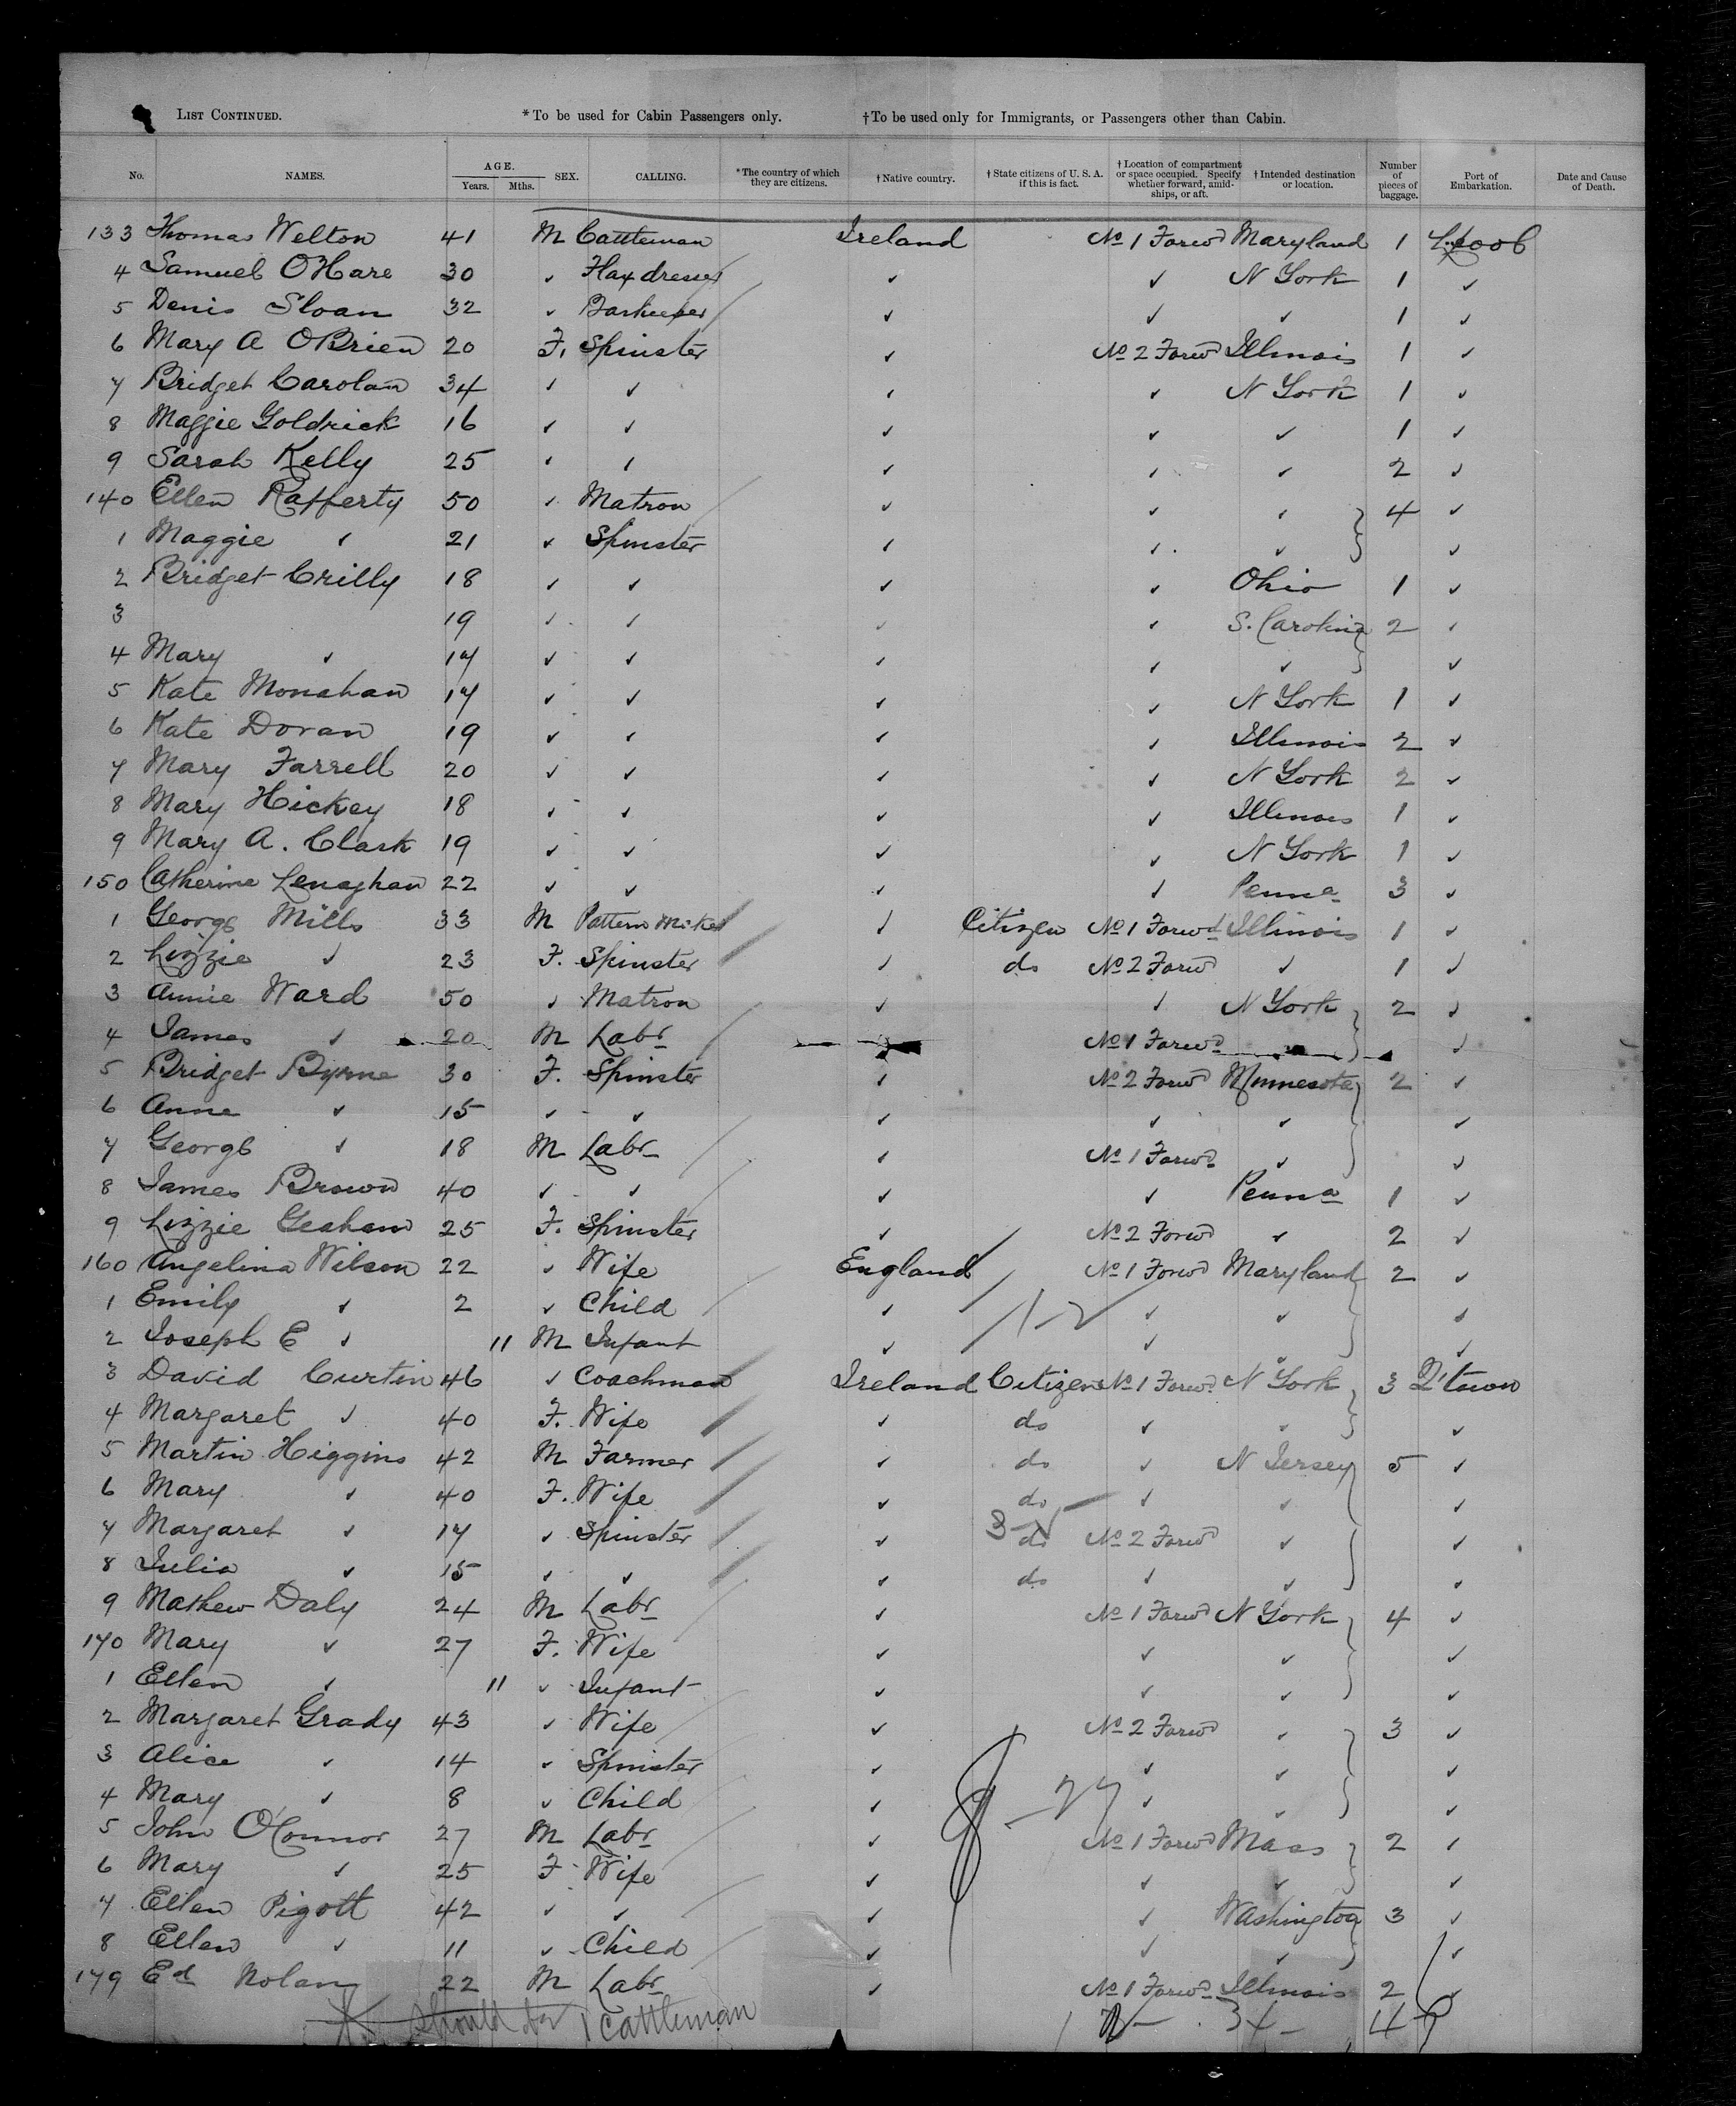 LIST CONTINUED. *To be used for Cabin Passengers only. †To be used only for Immigrants, or Passengers other than Cabin.
No. NAMES. AGE. Years. Mths. SEX. CALLING. *The country of which they are citizens. †Native country. †State citizens of U. S. A. if this is fact. †Location of compartment or space occupied. Specify whether forward, amidships, or aft. †Intended destination or location. Number of pieces of baggage. Port of Embarkation. Date and Cause of Death.
133 Thomas Welton 41 M Cattleman Ireland No 1 Forwd Maryland 1 L.pool
4 Samuel O'Hare 30 ✓ Flax dresser ✓ ✓ N York 1 ✓
5 Denis Sloan 32 ✓ Barkeeper ✓ ✓ ✓ 1 ✓
6 Mary A OBrien 20 F. Spinster ✓ No 2 Forwd Illinois 1 ✓
7 Bridget Carolan 34 ✓ ✓ ✓ ✓ N York 1 ✓
8 Maggie Goldrick 16 ✓ ✓ ✓ ✓ ✓ 1 ✓
9 Sarah Kelly 25 ✓ ✓ ✓ ✓ ✓ 2 ✓
140 Ellen Rafferty 50 ✓ Matron ✓ ✓ ✓ 4 ✓
1 Maggie ✓ 21 ✓ Spinster ✓ ✓ ✓ ✓
2 Bridget Crilly 18 ✓ ✓ ✓ ✓ Ohio 1 ✓
3 19 ✓ ✓ ✓ ✓ S. Carolina 2 ✓
4 Mary ✓ 17 ✓ ✓ ✓ ✓ ✓ ✓
5 Kate Monahan 17 ✓ ✓ ✓ ✓ N York 1 ✓
6 Kate Doran 19 ✓ ✓ ✓ ✓ Illinois 2 ✓
7 Mary Farrell 20 ✓ ✓ ✓ ✓ N York 2 ✓
8 Mary Hickey 18 ✓ ✓ ✓ ✓ Illinois 1 ✓
9 Mary A. Clark 19 ✓ ✓ ✓ ✓ N York 1 ✓
150 Catherine Lenaghan 22 ✓ ✓ ✓ ✓ Penna 3 ✓
1 George Mills 33 M Pattern Maker ✓ Citizen No 1 Forwd Illinois 1 ✓
2 Lizzie ✓ 23 F. Spinster ✓ do No 2 Forwd ✓ 1 ✓
3 Annie Ward 50 ✓ Matron ✓ ✓ N York 2 ✓
4 James ✓ 20 M Labr No 1 Forwd ✓
5 Bridget Byrne 30 F. Spinster ✓ No 2 Forwd Minnesota 2 ✓
6 Anne ✓ 15 ✓ ✓ ✓ ✓ ✓ ✓
7 George ✓ 18 M Labr ✓ No 1 Forwd ✓ ✓
8 James Brown 40 ✓ ✓ ✓ ✓ Penna 1 ✓
9 Lizzie Graham 25 F. Spinster ✓ No 2 Forwd ✓ 2 ✓
160 Angelina Wilson 22 ✓ Wife England No 1 Forwd Maryland 2 ✓
1 Emily ✓ 2 ✓ Child ✓ ✓ ✓ ✓
2 Joseph E ✓ 11 M Infant ✓ ✓ ✓ ✓
3 David Curtin 46 ✓ Coachman Ireland Citizens No 1 Forwd N York 3 Q'town
4 Margaret ✓ 40 F. Wife ✓ do ✓ ✓ ✓
5 Martin Higgins 42 M Farmer ✓ do ✓ N Jersey 5 ✓
6 Mary ✓ 40 F. Wife ✓ do ✓ ✓ ✓
7 Margaret ✓ 17 ✓ Spinster ✓ do No 2 Forwd ✓ ✓
8 Julia ✓ 15 ✓ ✓ ✓ do ✓ ✓ ✓
9 Mathew Daly 24 M Labr ✓ No 1 Forwd N York 4 ✓
170 Mary ✓ 27 F. Wife ✓ ✓ ✓ ✓
1 Ellen ✓ 11 ✓ Infant ✓ ✓ ✓ ✓
2 Margaret Grady 43 ✓ Wife ✓ No 2 Forwd ✓ 3 ✓
3 Alice ✓ 14 ✓ Spinster ✓ ✓ ✓ ✓
4 Mary ✓ 8 ✓ Child ✓ ✓ ✓ ✓
5 John O'Connor 27 M Labr ✓ No 1 Forwd Mass 2 ✓
6 Mary ✓ 25 F Wife ✓ ✓ ✓ ✓
7 Ellen Pigott 42 ✓ ✓ ✓ ✓ Washington 3 ✓
8 Ellen ✓ 11 ✓ Child ✓ ✓ ✓ ✓
179 Ed Nolan 22 M Labr ✓ No 1 Forwd Illinois 2 ✓
should be 1 cattleman